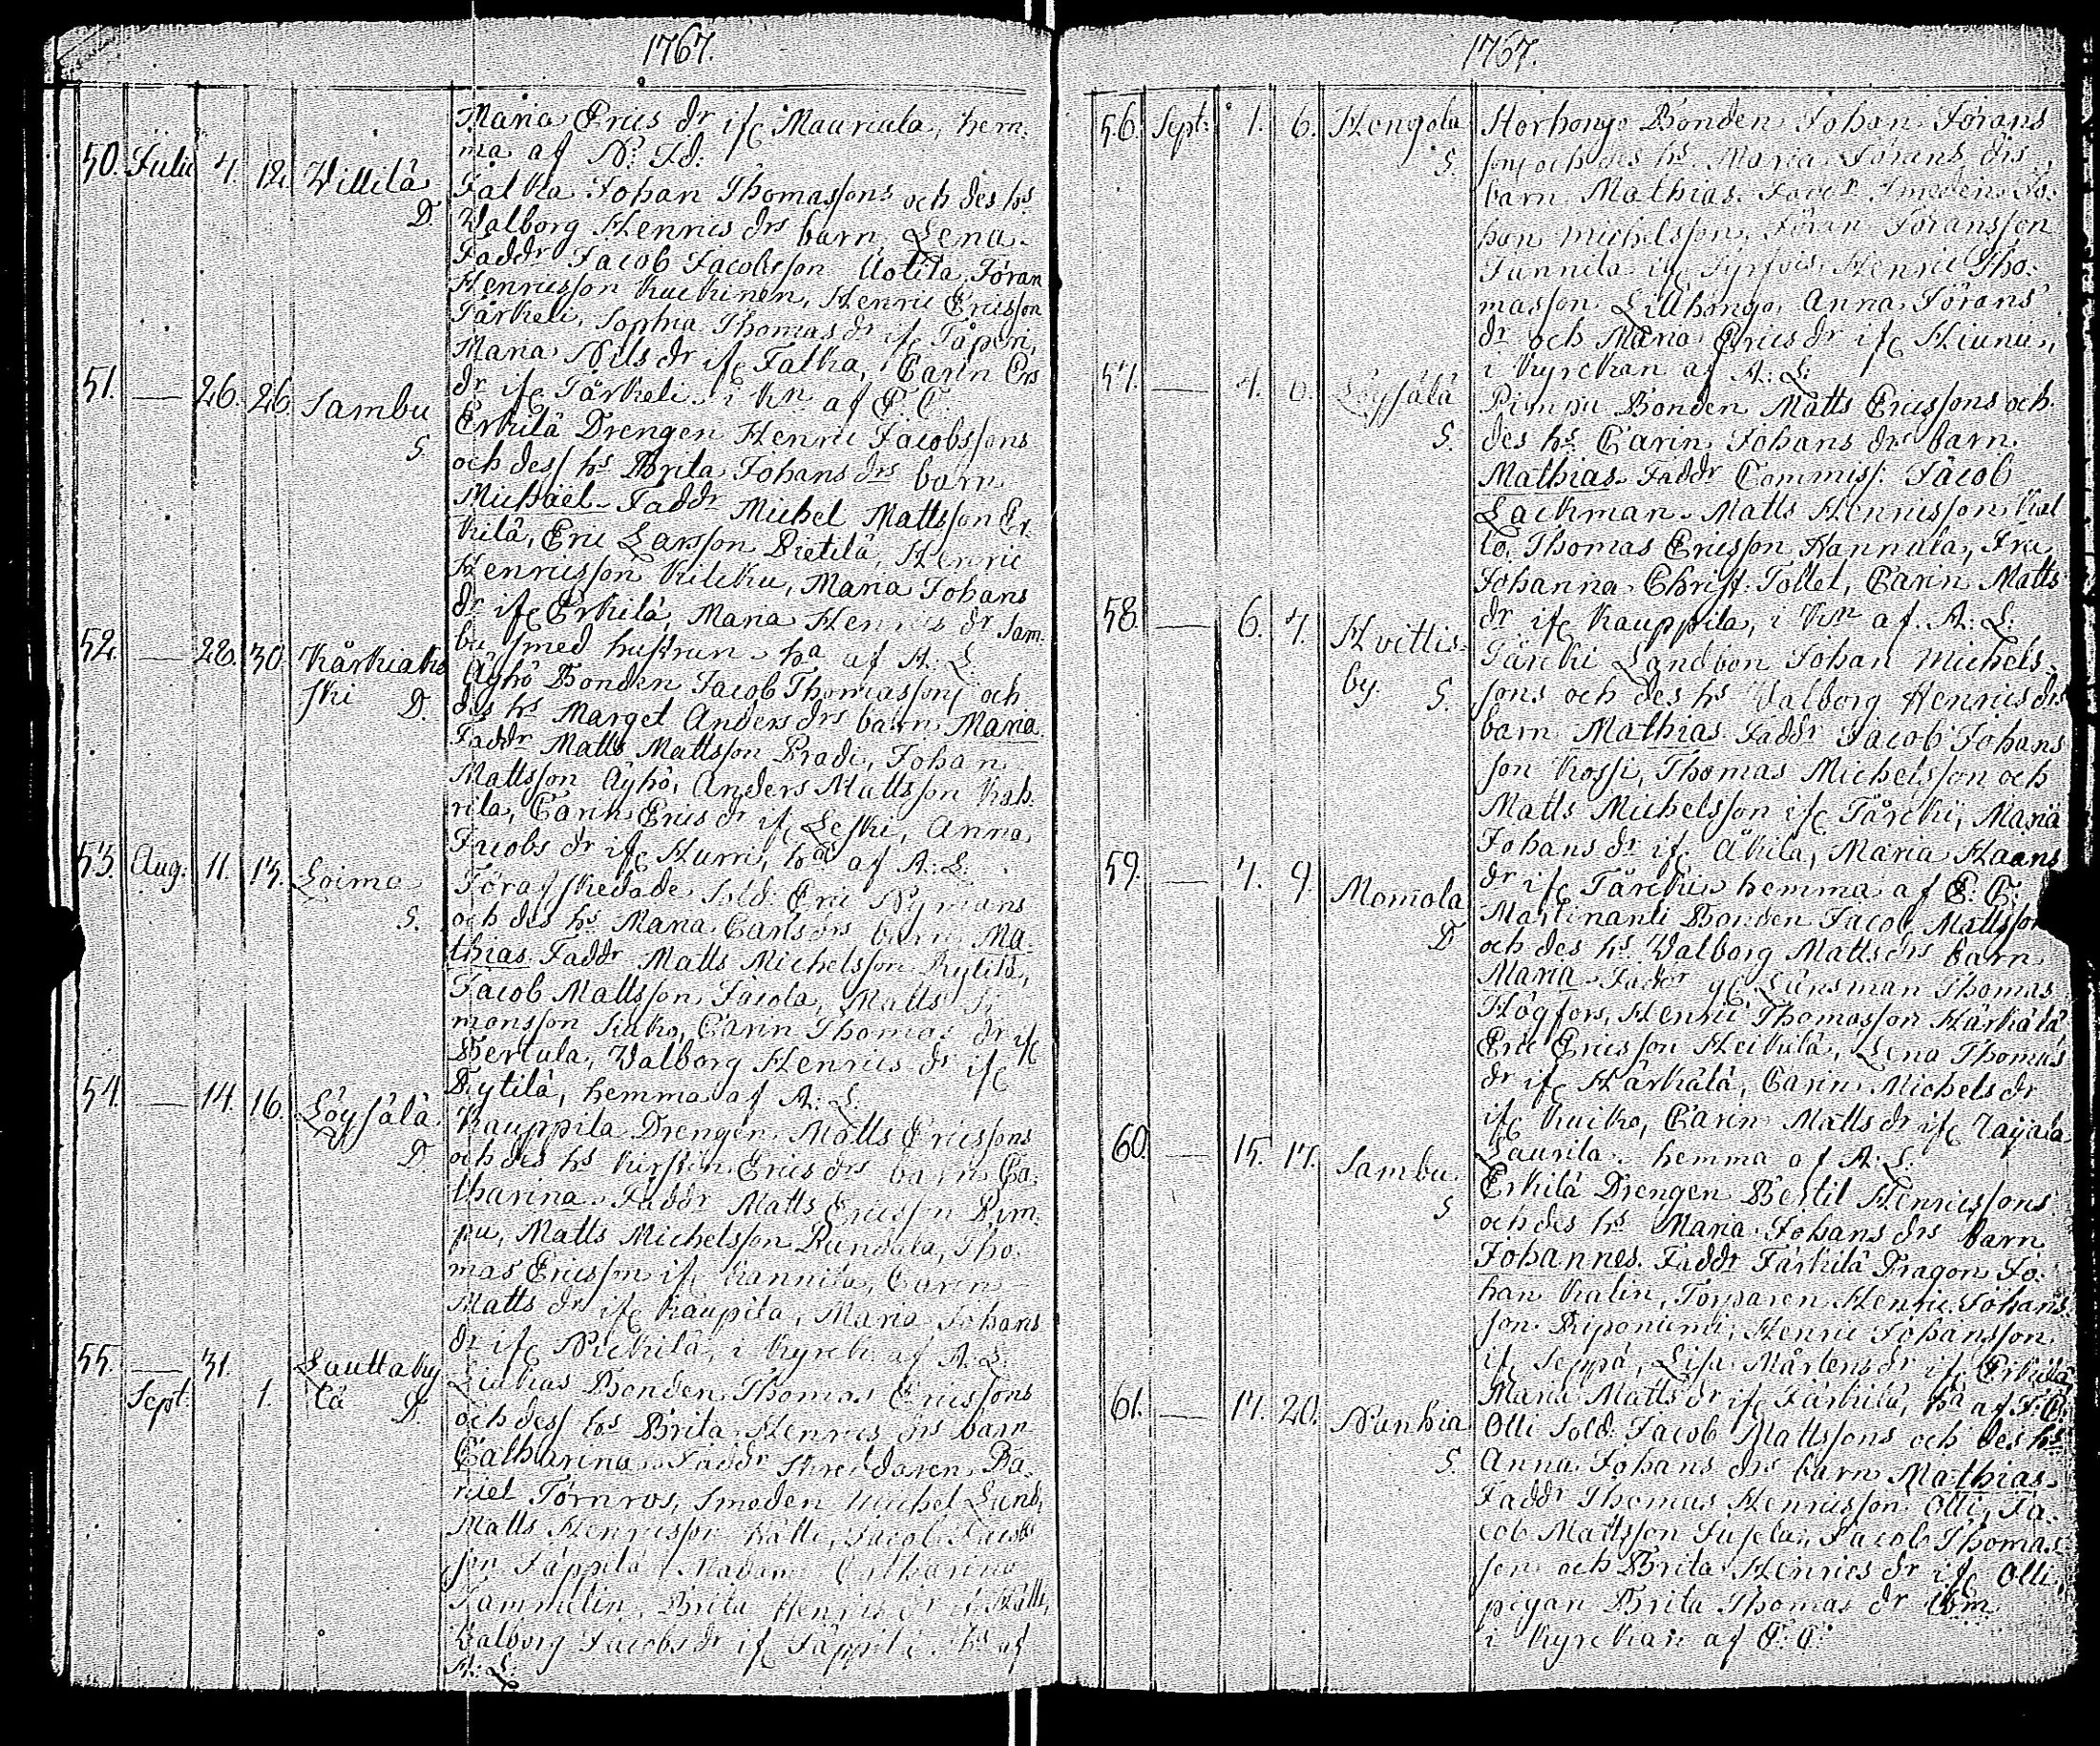 1767.
Maria Erics dr ifr Mauriala, hem-
ma af N: Id:
50. Julii 4. 12. Willilä D.
Jalka Johan Thomassons och des hs
Valborg Henrics drs barn Lena
Faddr Jacob Jacobsson Uotila, Jöran
Henricsson Kuckinen, Henric Ericsson
Järkeli, Sophia Thomas dr ifr Tåperi,
Maria Nils dr ifr Jalka, Carin Ers
dr ifr Järkeli i Kn af E. C.
51. — 26. 26 Sambu S
Erkilä Drengen Henric Jacobssons
och dess hs Brita Johans drs barn
Michaël Faddr Michel Mattsson Er-
kilä, Eric Larsson Pietilä, Henric
Henricsson Kileku, Maria Johans
dr ifr Erkilä, Maria Henrics dr Sam-
bu, smed hustrun ha af A: L.
52. — 28. 30. Kårkiako
ski D.
Äyhö Bonden Jacob Thomassons och
des hs Marget Anders drs barn Maria
Faddr Matts Mattsson Pradi, Johan
Mattsson Äyhö, Anders Mattsson Kah-
rila, Carin Erics dr ifr Leski, Anna
Jacobs dr ifr Hurri, ha af A: L:
53. Aug: 11. 13. Loima S.
Förafskedade Sold: Eric Nymans
och des hs Maria Carls drs barn Ma-
thias Faddr Matts Michelsson Rytilä,
Jacob Mattsson Jacola, Matts Si-
monsson Siuko, Carin Thomas dr ifr
Bertula, Valborg Henrics dr ifr
Rytilä, hemma af A: L.
54. — 14. 16. Löysälä D.
Kauppila Drengen Matts Ericssons
och des hs Kirstin Erics drs barn Ca-
tharina Faddr Matts Ericsson Pim-
pu, Matts Michelsson Pundala, Tho-
mas Ericsson ifr Hannila, Carin
Matts dr ifr Kaupila, Maria Johans
dr ifr Nickilä, i Kyrck: af A: L:
55. — 31. Lauttaky
Sept: 1. lä D.
Liukas Bonden Thomas Ericssons
och dess hs Brita Henrics drs barn
Catharina Faddr Skreddaren Da-
niel Törnros, Smeden Michel Lund,
Matts Henricsson Kalli, Jacob Jacobs
son Jäppilä Madam Catharina
Tammelin, Brita Henrics dr ifr Kalli,
Valborg Jacobs dr ifr Jäppilä hs af
A: L:
1767.
56. Sept: 1. 6. Hongola S.
Storhongo Bonden Johan Jörans
sons och des hs Maria Jörans drs
barn Mathias Faddr Smeden Jo-
han Michelsson, Jöran Jöransson
Junnila ifr Sysois Henric Tho-
masson Lillhongo, Anna Jörans
dr och Maria Erics dr ifr Hiunu,
i Kyrckan af A: L:
57. — 4. 6. Löysälä S.
Pimpu Bonden Matts Ericssons och
des hs Carin Johans drs barn
Mathias Faddr Commiss. Jacob
Lackman Matts Henricsson Kal
lo, Thomas Ericsson Hannula, Fru
Johanna Christ: Tollet, Carin Matts
dr ifr Kauppila, i Kn af A: L:
58. — 6. 7. Hvittis-
by. S.
Järcki Landbon Johan Michels-
sons och des hs Valborg Henrics drs
barn Mathias Faddr Jacob Johans
son Kossi, Thomas Michelsson och
Matts Michelsson ifr Järcki, Maria
Johans dr ifr Äkilä, Maria Haans
dr ifr Järcki hemma af E: C:
59. — 7. 9. Momola D
Martinanti Bonden Jacob Mattsson
och des hs Valborg Matts drs barn
Maria Faddr Länsman Thomas
Högfors, Henric Thomasson Härkälä
Eric Ericsson Heikilä, Lena Thomas
dr ifr Härkälä, Carin Michels dr
ifr Kuiko, Carin Matts dr ifr Raijala
Laurila hemma af A: L:
60. — 15. 17. Sambu S
Erkilä Drengen Bertil Henricssons
och des hs Maria Johans drs barn
Johannes Faddr Järkilä Dragon Jo-
han Kalin, Torparen Henric Johans
son Riponiemi, Henric Johansson
ifr Seppä, Lisa Mårtens dr ifr Erkilä
Maria Matts dr ifr Järkilä, ha af E: C:
61. — 17. 20. Nanhia S.
Olli Sold: Jacob Mattssons och des hs
Anna Johans drs barn Mathias
Faddr Thomas Henricsson Olli, Ja-
cob Mattsson Jusela, Jacob Thomas
son och Brita Henrics dr ifr Olli
pigan Brita Thomas dr ibm
i Kyrckan af E: C: